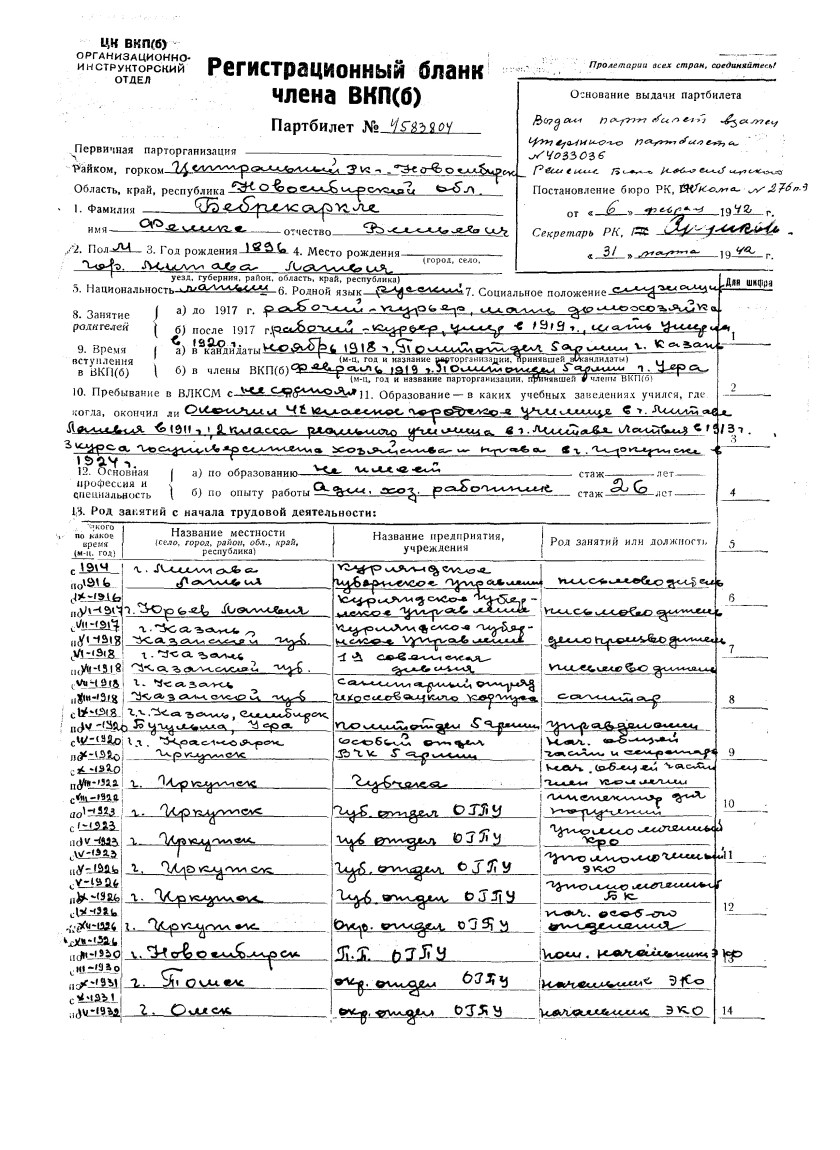 ЦК ВКП(б)
ОРГАНИЗАЦИОННО-
ИНСТРУКТОРСКИЙ
ОТДЕЛ
Регистрационный бланк
члена ВКП(б)
Партбилет № 4583804
Пролетарии всех стран, соединяйтесь!
Основание выдачи партбилета
Выдан партбилет взамен
утерянного партбилета
№ 4033036
Решение Бюро Новосибирского
Постановление бюро РК, кома № 276 п.9
от « 6 » февраля 1942 г.
Секретарь РК,
« 31 » марта 1942 г.
Первичная парторганизация
Райком, горком Центральный РК - Новосибирск
Область, край, республика Новосибирской обл.
1. Фамилия Бебрекаркле
имя Феликс отчество Вильевич
2. Пол М 3. Год рождения 1896 4. Место рождения
(город, село,
гор. Митава Латвия
уезд, губерния, район, область, край, республика)
5. Национальность латыш 6. Родной язык русский 7. Социальное положение служащий
Для шифра
8. Занятие родителей
а) до 1917 г. рабочий-курьер, мать домохозяйка
б) после 1917 г. рабочий-курьер, умер в 1919 г., мать умерла
в 1920 г.
1
9. Время вступления в ВКП(б)
а) в кандидаты ноябрь 1918 г. Политотдел 5 армии г. Казань
(м-ц, год и название парторганизации, принявшей в кандидаты)
б) в члены ВКП(б) февраль 1919 г. Политотдел 5 армии г. Уфа
(м-ц, год и название парторганизации, принявшей в члены ВКП(б)
2
10. Пребывание в ВЛКСМ с не состоял 11. Образование — в каких учебных заведениях учился, где
когда, окончил ли Окончил 4х классное городское училище в г. Митаве
Латвия в 1911 г., 2 класса реального училища в г. Митаве Латвия в 1913 г.
3
3 курса госуниверситета хозяйства и права в г. Иркутске в
1924 г.
12. Основная профессия и специальность
а) по образованию не имеет стаж лет
б) по опыту работы Адм. хоз. работник стаж 26 лет
4
13. Род занятий с начала трудовой деятельности:
С какого по какое время (м-ц, год)
Название местности (село, город, район, обл., край, республика)
Название предприятия, учреждения
Род занятий или должность
5
с 1914 по 1916 г. Митава Латвия Курляндское губернское управление письмоводитель
6
с IX-1916 по VI-1917 г. Юрьев Латвия Курляндское губернское управление письмоводитель
с VII-1917 по VI-1918 г. Казань, Казанской губ. Курляндское губернское управление делопроизводитель
7
с VI-1918 по VII-1918 г. Казань Казанской губ. 1я советская дивизия письмоводитель
с VII-1918 по VIII-1918 г. Казань Казанской губ санитарный отряд чехословацкого корпуса санитар
8
с IX-1918 по IV-1920 г.г. Казань, Симбирск Бугульма, Уфа политотдел 5 армии управделами
с IV-1920 по X-1920 г.г. Красноярск Иркутск особый отдел ВЧК 5 армии нач. общей части и секретарь
9
с X-1920 по VIII-1922 г. Иркутск Губчека нач. общей части член коллегии
с VIII-1922 по I-1923 г. Иркутск губ. отдел ОГПУ инспектор для поручений
10
с I-1923 по IV-1923 г. Иркутск губ отдел ОГПУ уполномоченный КРО
с IV-1923 по V-1926 г. Иркутск губ. отдел ОГПУ уполномоченный ЭКО
11
с V-1926 по IX-1926 г. Иркутск губ отдел ОГПУ уполномоченный БК
12
с IX-1926 по XII-1926 г. Иркутск окр. отдел ОГПУ нач. особого отделения
с XII-1926 по III-1930 г. Новосибирск П.П. ОГПУ пом. начальника ЭКО
13
с III-1930 по X-1931 г. Томск окр. отдел ОГПУ начальник ЭКО
с X-1931 по IV-1932 г. Омск окр. отдел ОГПУ начальник ЭКО
14